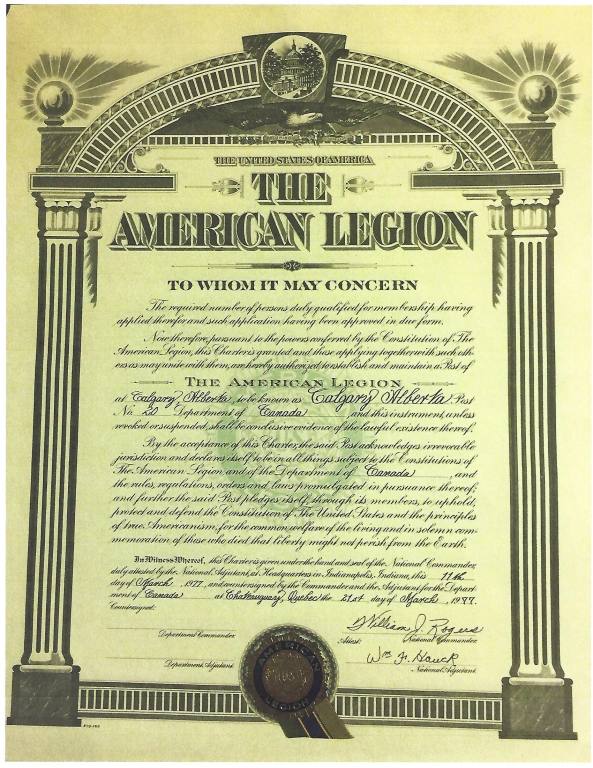 THE UNITED STATES OF AMERICA
THE
AMERICAN LEGION
TO WHOM IT MAY CONCERN
The required number of persons duly qualified for membership having
applied therefor and such application having been approved in due form.
Now therefore, pursuant to the powers conferred by the Constitution of The
American Legion, this Charter is granted and those applying together with such oth-
ers as may unite with them, are hereby authorized to establish and maintain a Post of
THE AMERICAN LEGION
at Calgary, Alberta, to be known as Calgary Alberta Post
No. 20 Department of Canada, and this instrument, unless
revoked or suspended, shall be conclusive evidence of the lawful existence thereof.
By the acceptance of this Charter, the said Post acknowledges irrevocable
jurisdiction and declares itself to be in all things subject to the Constitutions of
The American Legion and of the Department of Canada, and
the rules, regulations, orders and laws promulgated in pursuance thereof;
and further the said Post pledges itself, through its members, to uphold,
protect and defend the Constitution of The United States and the principles
of true Americanism, for the common welfare of the living and in solemn com-
memoration of those who died that liberty might not perish from the Earth.
In Witness Whereof, this Charter is given under the hand and seal of the National Commander,
duly attested by the National Adjutant, at Headquarters in Indianapolis, Indiana, this 11th
day of March, 1977, and countersigned by the Commander and the Adjutant for the Depart-
ment of Canada at Chateauguay, Quebec the 21st day of March, 1977.
Countersigned:
William J. Rogers
Department Commander
Attest:
National Commander
Wm F. Hauck
Department Adjutant
National Adjutant
AMERICAN
LEGION